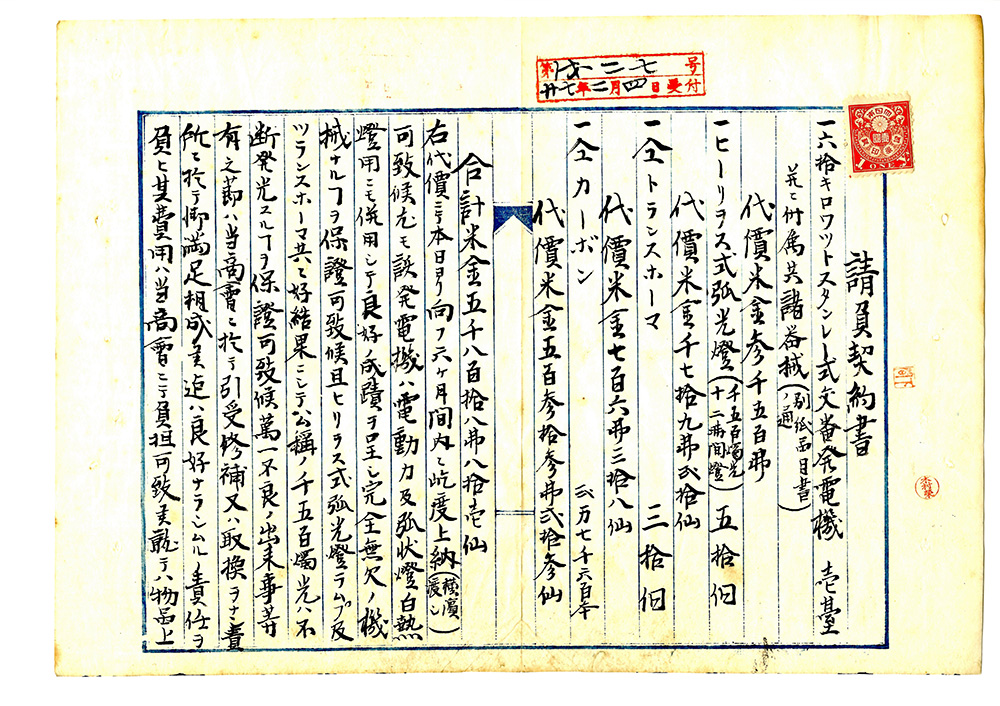 第戊一二七号
廿七年二月四日受付
請負契約書
一六拾キロワツトスタンレー式交番発電機 壱臺
並ニ附属共諸器械(別紙品目書ノ通)
代價米金参千五百弗
一ヒーリヲス式弧光燈(千五百燭光十二時間燈)五拾個
代價米金千七拾九弗弐拾仙
一仝トランスホーマ 三拾個
代價米金七百六弗三拾八仙
一仝カーボン 二万七千六百本
代價米金五百参拾参弗弐拾参仙
合計米金五千八百拾八弗八拾壱仙
右代價ニテ本日ヨリ向フ六ヶ月間内ニ屹度上納(横濱渡シ)
可致候尤モ該発電機ハ電動力及弧状燈白熱
燈用ニモ併用シテ良好ノ成蹟ヲ呈シ完全無欠ノ機
械ナルヿヲ保證可致候且ヒリヲス式弧光燈ラムプ及
ツランスホーマ共ニ好結果ニシテ公稱ノ千五百燭光ハ不
断発光スルヿヲ保證可致候萬一不良ノ出来事等
有之節ハ当商會ニ於テ引受修補又ハ取換ヲナシ貴
所ニ於テ御満足相成候迄ハ良好ナラシムルノ責任ヲ
負ヒ其費用ハ当商會ニテ負担可致候就テハ物品上
ONE